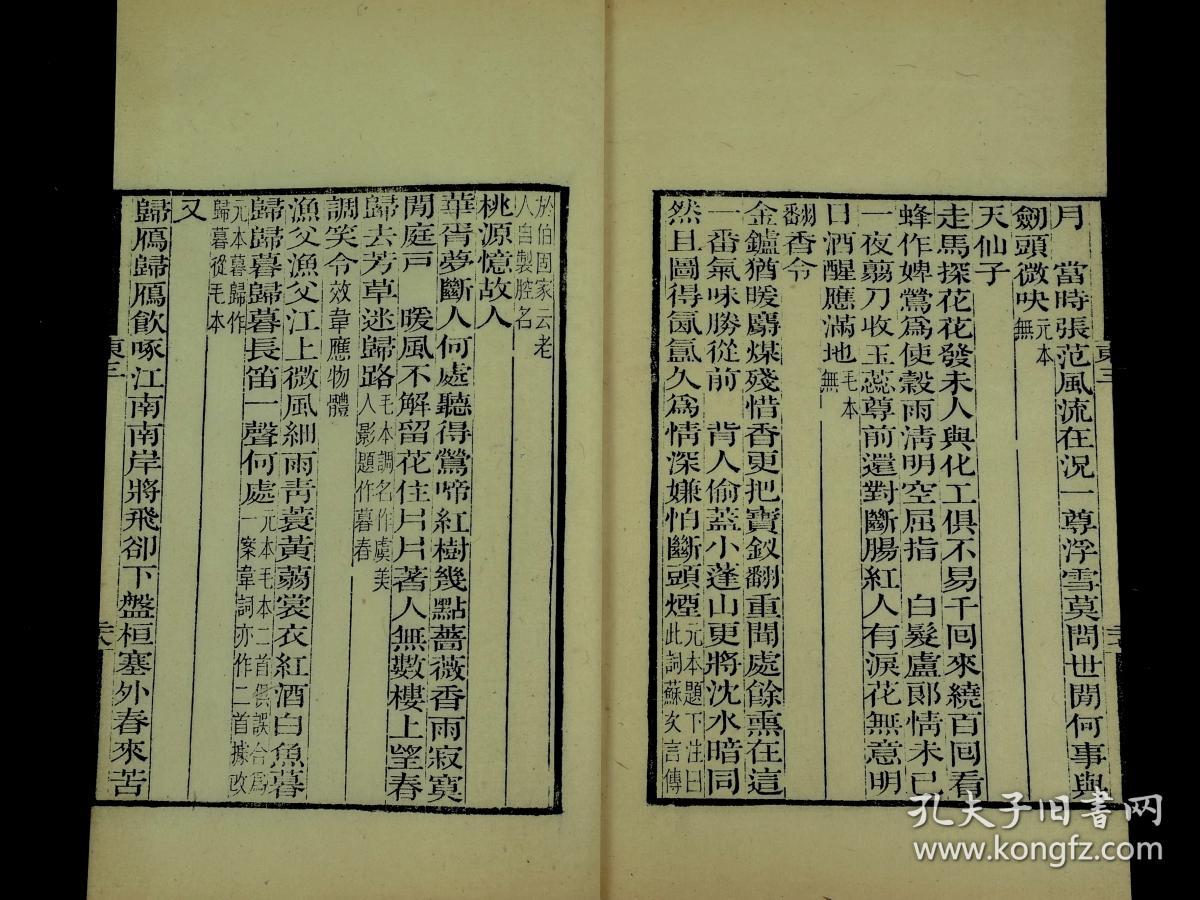 月　當時張范風流在況一尊浮雪莫問世閒何事與
劒頭微吷元本
無
天仙子
走馬探花花發未人與化工俱不易千回來繞百回看
蜂作婢鶯爲使穀雨淸明空屈指　白髮盧郎情未已
一夜翦刀收玉蕊尊前還對斷腸紅人有淚花無意明
日酒醒應滿地毛本
無
翻香令
金鑪猶暖麝煤殘惜香更把寶釵翻重聞處餘熏在這
一番氣味勝從前　背人偷蓋小蓬山更將沈水暗同
然且圖得氤氳久爲情深嫌怕斷頭煙元本題下注曰
此詞蘇次言傳
於伯固家云老
人自製腔名
桃源憶故人
華胥夢斷人何處聽得鶯啼紅樹幾點薔薇香雨寂寞
閒庭戸　暖風不解留花住片片著人無數樓上望春
歸去芳草迷歸路毛本調名作虞美
人影題作暮春
調笑令效韋應物體
漁父漁父江上微風細雨靑蓑黃蒻裳衣紅酒白魚暮
歸歸暮歸暮長笛一聲何處元本毛本二首俱誤合爲
一案韋詞亦作二首據改
元本暮歸作
歸暮從毛本
又
歸鴈歸鴈飮啄江南南岸將飛卻下盤桓塞外春來苦
東三
東三
孔夫子旧書网
www.kongfz.com